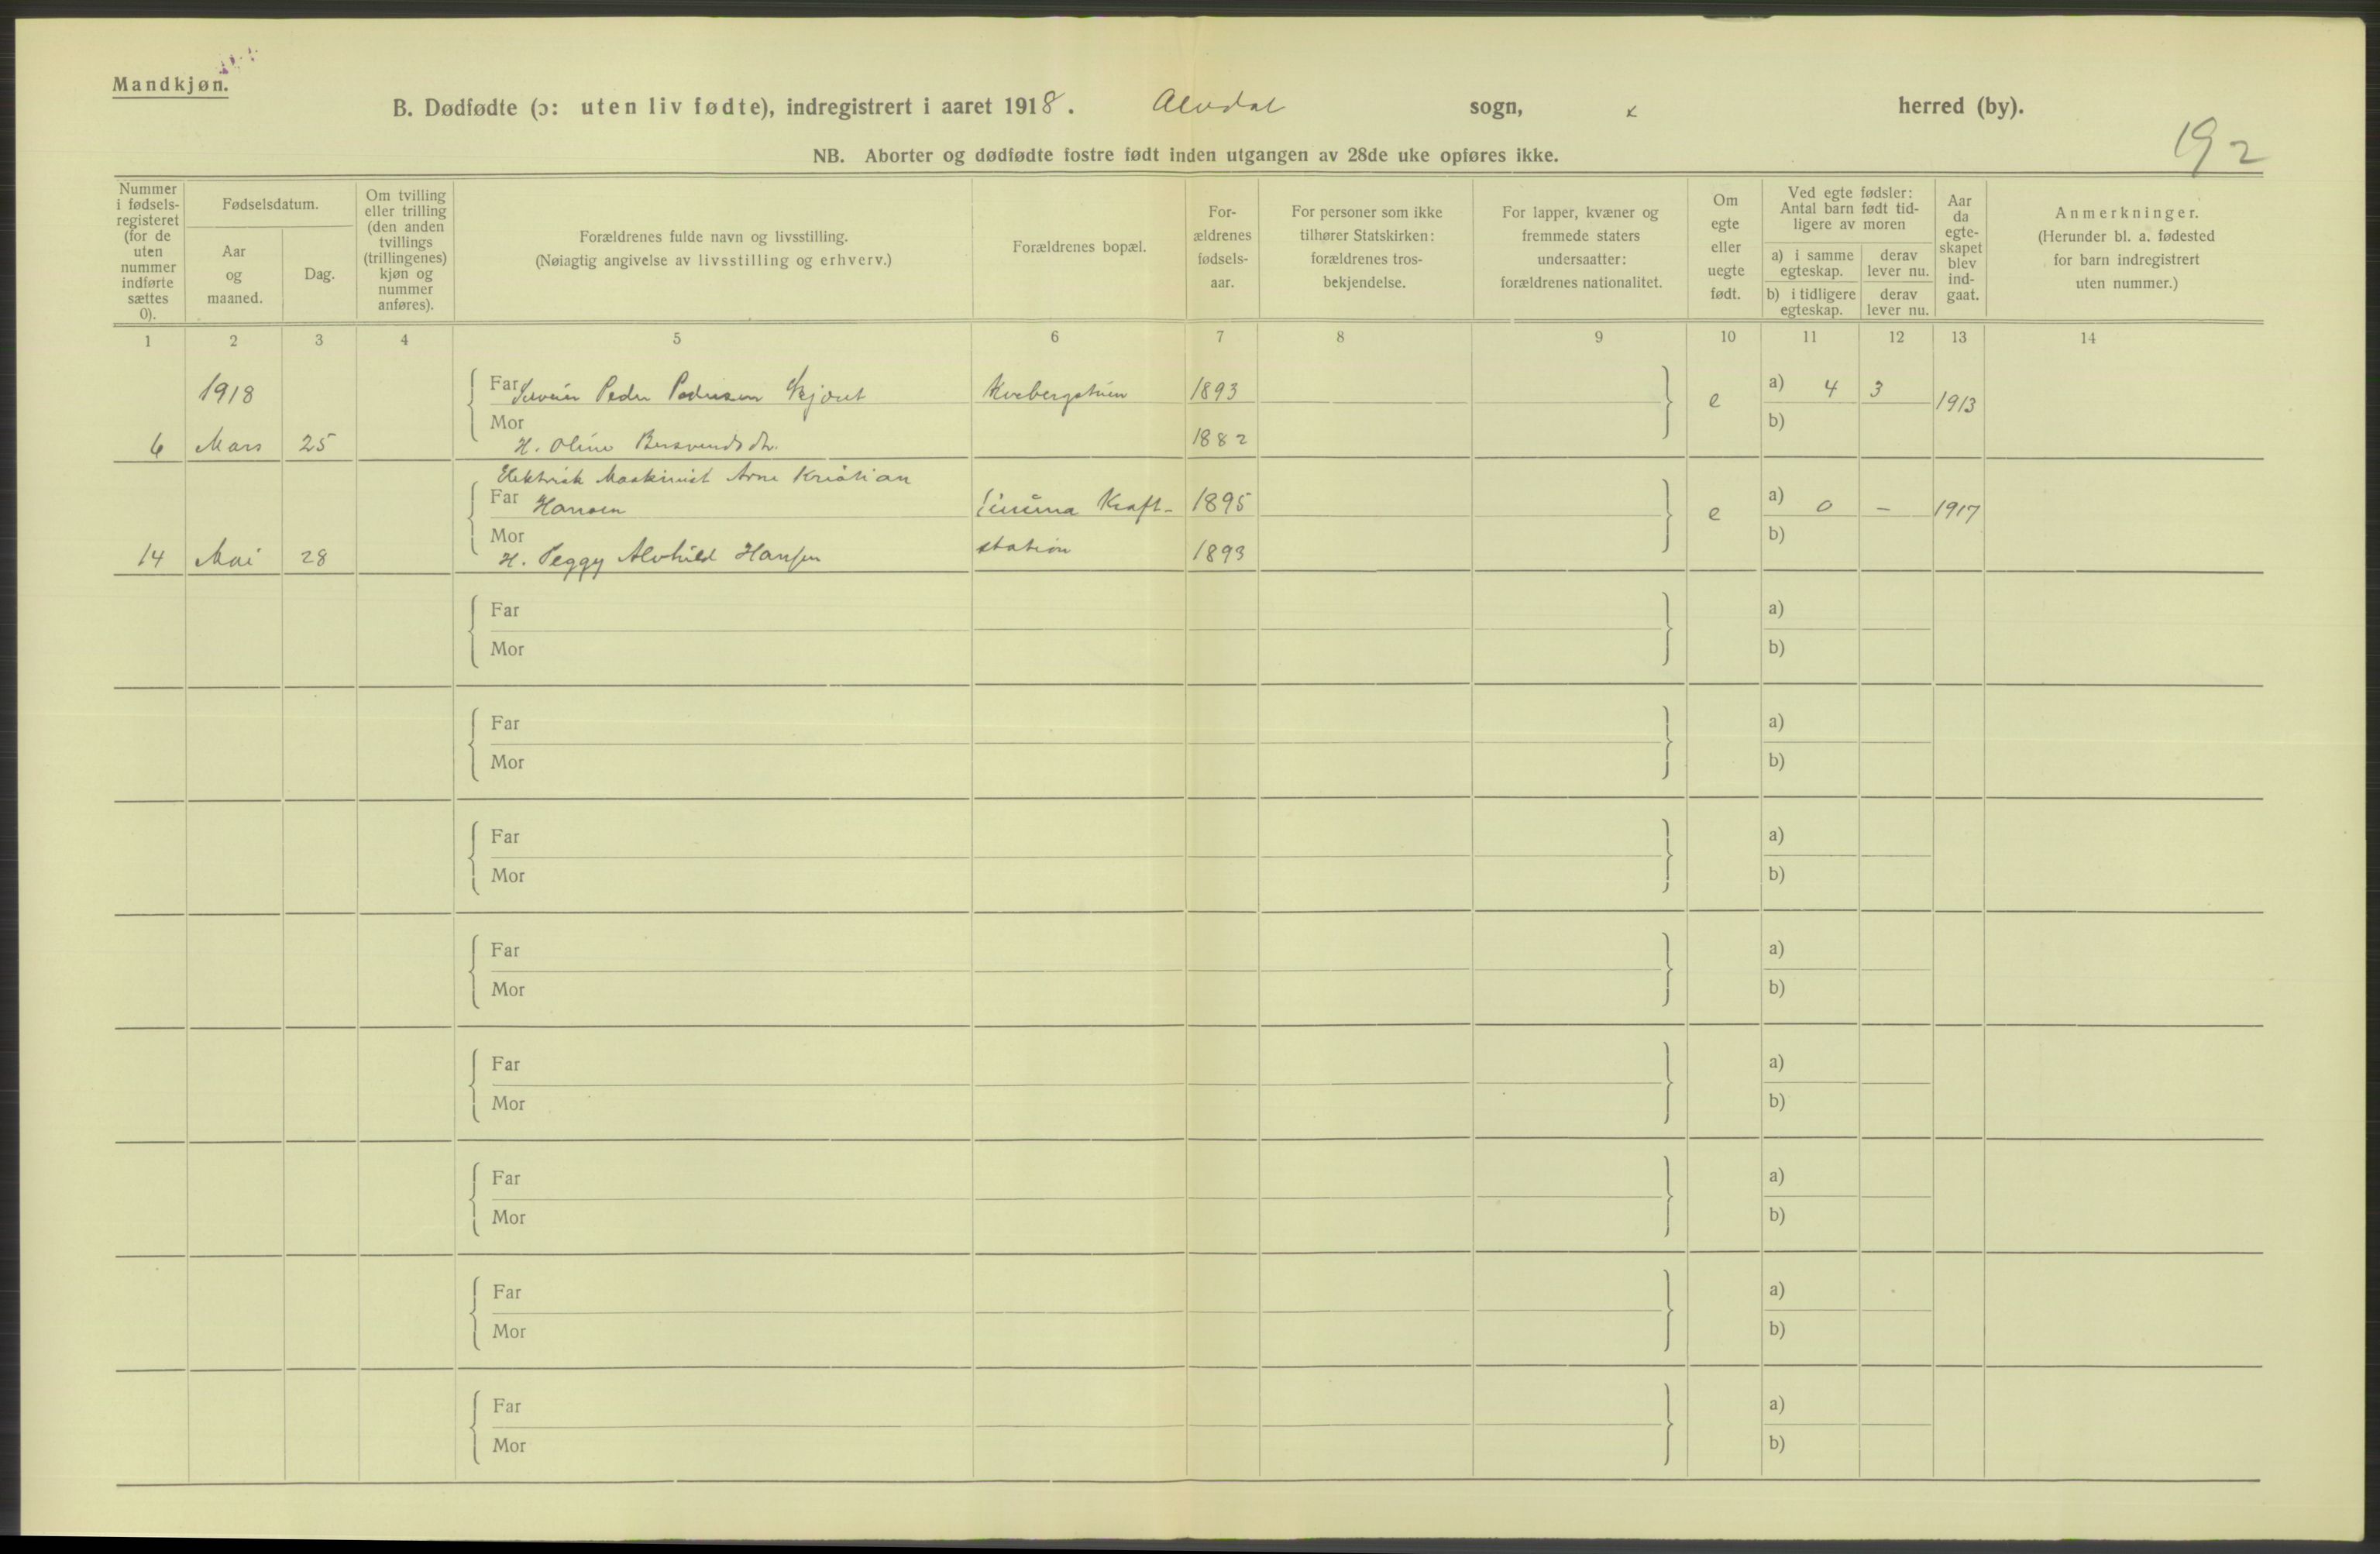 Mandkjøn.
B. Dødfødte (ɔ: uten liv fødte), indregistrert i aaret 1918. Alvdal sogn, herred (by).
192
NB. Aborter og dødfødte fostre født inden utgangen av 28de uke opføres ikke.
Nummer i fødsels-registeret (for de uten nummer indførte sættes 0).
Fødselsdatum.
Aar og maaned.
Dag.
Om tvilling eller trilling (den anden tvillings (trillingenes) kjøn og nummer anføres).
Forældrenes fulde navn og livsstilling.
(Nøiagtig angivelse av livsstilling og erhverv.)
Forældrenes bopæl.
For-ældrenes fødsels-aar.
For personer som ikke tilhører Statskirken: forældrenes tros-bekjendelse.
For lapper, kvæner og fremmede staters undersaatter: forældrenes nationalitet.
Om egte eller uegte født.
Ved egte fødsler: Antal barn født tid-ligere av moren
a) i samme egteskap.
derav lever nu.
b) i tidligere egteskap.
derav lever nu.
Aar da egte-skapet blev ind-gaat.
Anmerkninger.
(Herunder bl. a. fødested for barn indregistrert uten nummer.)
1 2 3 4 5 6 7 8 9 10 11 12 13 14
1918 Far Peder Pedersen 1893 e a) 4 3 1913
6 Mars 25 Mor H. Oline 1882 b)
Elektrisk Maskinist Arne Kristian
Far Hansen Kraft- 1895 e a) 0 – 1917
14 Mai 28 Mor H. Peggy Alvhild Hansen station 1893 b)
Far a)
Mor b)
Far a)
Mor b)
Far a)
Mor b)
Far a)
Mor b)
Far a)
Mor b)
Far a)
Mor b)
Far a)
Mor b)
Far a)
Mor b)